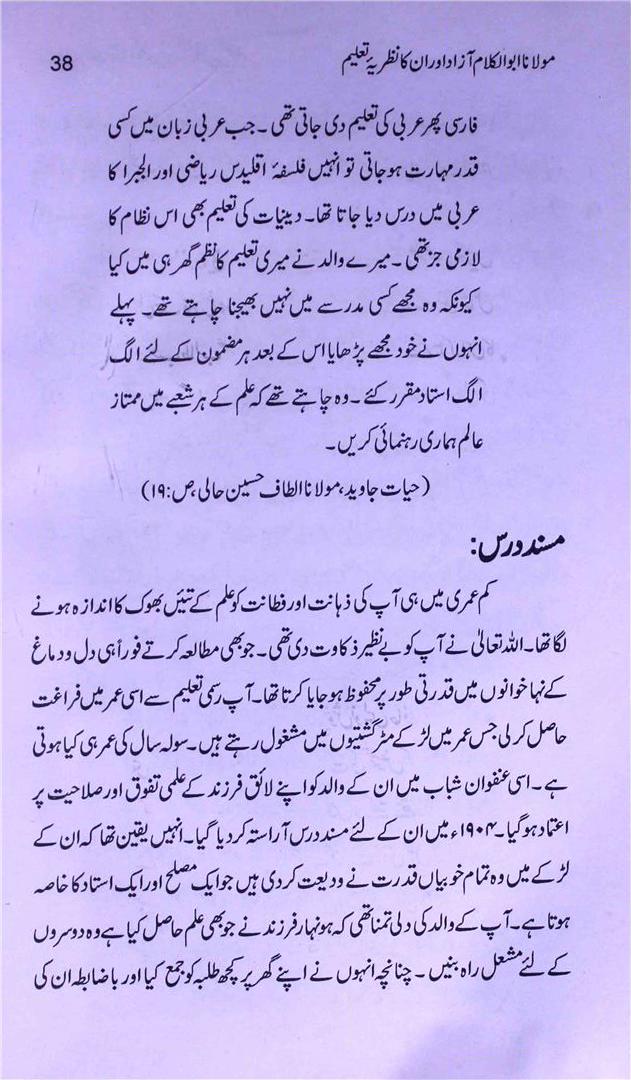 مولانا ابوالکلام آزاد اور ان کا نظریۂ تعلیم 38
فارسی پھر عربی کی تعلیم دی جاتی تھی۔ جب عربی زبان میں کسی
قدر مہارت ہو جاتی تو انہیں فلسفۂ اقلیدس ریاضی اور الجبرا کا
عربی میں درس دیا جاتا تھا۔ دینیات کی تعلیم بھی اس نظام کا
لازمی جز تھی۔ میرے والد نے میری تعلیم کا نظم گھر ہی میں کیا
کیونکہ وہ مجھے کسی مدرسے میں نہیں بھیجنا چاہتے تھے۔ پہلے
انہوں نے خود مجھے پڑھایا اس کے بعد ہر مضمون کے لئے الگ
الگ استاد مقرر کئے۔ وہ چاہتے تھے کہ علم کے ہر شعبے میں ممتاز
عالم ہماری رہنمائی کریں۔
(حیات جاوید، مولانا الطاف حسین حالی، ص: ۱۹)
مسند درس:
کم عمری میں ہی آپ کی ذہانت اور فطانت کو علم کے تئیں بھوک کا اندازہ ہونے
لگا تھا۔ اللہ تعالیٰ نے آپ کو بے نظیر ذکاوت دی تھی۔ جو بھی مطالعہ کرتے فوراً ہی دل و دماغ
کے نہا خوانوں میں قدرتی طور پر محفوظ ہو جایا کرتا تھا۔ آپ رسمی تعلیم سے اسی عمر میں فراغت
حاصل کر لی جس عمر میں لڑکے مٹر گشتیوں میں مشغول رہتے ہیں۔ سولہ سال کی عمر ہی کیا ہوتی
ہے۔ اسی عنفوان شباب میں ان کے والد کو اپنے لائق فرزند کے علمی تفوق اور صلاحیت پر
اعتماد ہو گیا۔ ۱۹۰۴ء میں ان کے لئے مسند درس آراستہ کر دیا گیا۔ انہیں یقین تھا کہ ان کے
لڑکے میں وہ تمام خوبیاں قدرت نے ودیعت کر دی ہیں جو ایک مصلح اور ایک استاد کا خاصہ
ہوتا ہے۔ آپ کے والد کی دلی تمنا تھی کہ ہونہار فرزند نے جو بھی علم حاصل کیا ہے وہ دوسروں
کے لئے مشعل راہ بنیں۔ چنانچہ انہوں نے اپنے گھر پر کچھ طلبہ کو جمع کیا اور باضابطہ ان کی